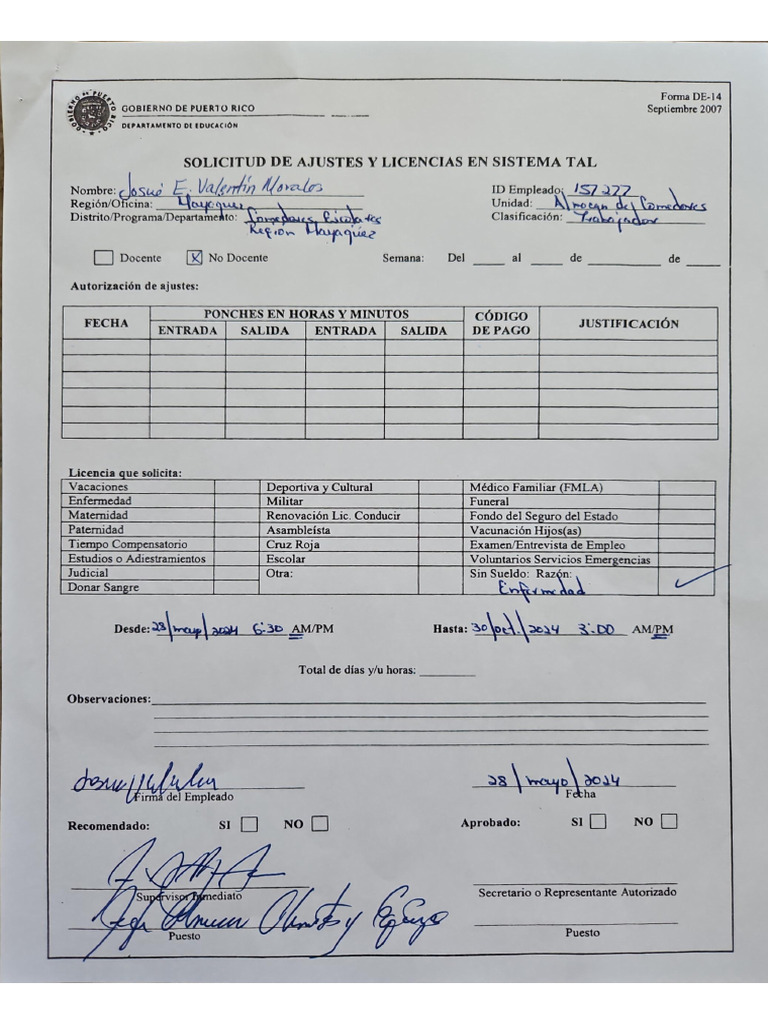 Forma DE-14
Septiembre 2007
GOBIERNO DE PUERTO RICO
DEPARTAMENTO DE EDUCACIÓN
SOLICITUD DE AJUSTES Y LICENCIAS EN SISTEMA TAL
Nombre: Josué E. Valentín Morales ID Empleado: 157277
Región/Oficina: Mayagüez Unidad: Almacen de Comedores
Distrito/Programa/Departamento: Comedores Escolares Clasificación: Trabajador
Region Mayagüez
Docente X No Docente Semana: Del al de de
Autorización de ajustes:
FECHA PONCHES EN HORAS Y MINUTOS CÓDIGO DE PAGO JUSTIFICACIÓN
ENTRADA SALIDA ENTRADA SALIDA
Licencia que solicita:
Vacaciones Deportiva y Cultural Médico Familiar (FMLA)
Enfermedad Militar Funeral
Maternidad Renovación Lic. Conducir Fondo del Seguro del Estado
Paternidad Asambleísta Vacunación Hijos(as)
Tiempo Compensatorio Cruz Roja Examen/Entrevista de Empleo
Estudios o Adiestramientos Escolar Voluntarios Servicios Emergencias
Judicial Otra: Sin Sueldo: Razón:
Donar Sangre Enfermedad
Desde: 28/mayo/2024 6:30 AM/PM Hasta: 30/oct./2024 3:00 AM/PM
Total de días y/u horas:
Observaciones:
28/mayo/2024
Firma del Empleado Fecha
Recomendado: SI NO Aprobado: SI NO
Supervisor Inmediato Secretario o Representante Autorizado
Puesto Puesto